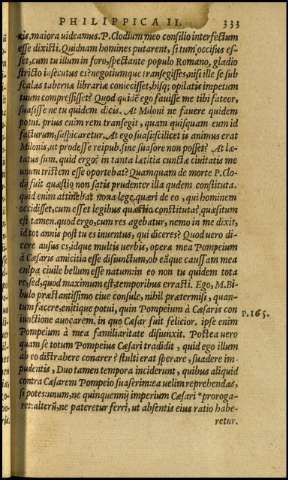 PHILIPPICA II. 333
xit, maiora uideamus. P. Clodium meo consilio interfectum
esse dixisti. Quidnam homines putarent, si tum occisus es-
set, cum tu illum in foro, spectante populo Romano, gladio
stricto insecutus es? negotiumque transegisses, nisi ille se sub
scalas tabernæ librariæ coniecisset, hisque oppilatis impetum
tuum compressisset? Quod quidem ego fauisse me tibi fateor,
suasisse ne tu quidem dicis. At Miloni ne fauere quidem
potui. prius enim rem transegit, quam quisquam eum id
facturum suspicaretur. At ego suasi: scilicet is animus erat
Milonis, ut prodesse reipub. sine suasore non posset? At læ-
tatus sum. quid ergo? in tanta lætitia cunctæ ciuitatis me
unum tristem esse oportebat? Quamquam de morte P. Clo-
dij fuit quæstio non satis prudenter illa quidem constituta.
quid enim attinebat noua lege quæri de eo, qui hominem
occidisset, cum esset legibus quæstio constituta? quæsitum
est tamen. quod ergo, cum res agebatur, nemo in me dixit,
id tot annis post tu es inuentus, qui diceres? Quod uero di-
cere ausus es, idque multis uerbis, opera mea Pompeium
à Cæsaris amicitia esse disiunctum, ob eamque caussam mea
culpa ciuile bellum esse natum: in eo non tu quidem tota
re, sed, quod maximum est, temporibus errasti. Ego, M. Bi-
bulo præstantissimo ciue consule, nihil prætermisi, quan-
tum facere, enitique potui, quin Pompeium à Cæsaris con
iunctione auocarem. in quo Cæsar fuit felicior. ipse enim
Pompeium à mea familiaritate disiunxit. Postea uero
quam se totum Pompeius Cæsari tradidit, quid ego illum
ab eo distrahere conarer? stulti erat sperare, suadere im-
pudentis. Duo tamen tempora inciderunt, quibus aliquid
contra Cæsarem Pompeio suaserim. ea uelim reprehendas,
si potes: unum, ne quinquennij imperium Cæsari *proroga-
ret: alterũ, ne pateretur ferri, ut absentis eius ratio habe-
retur.
P. 165.